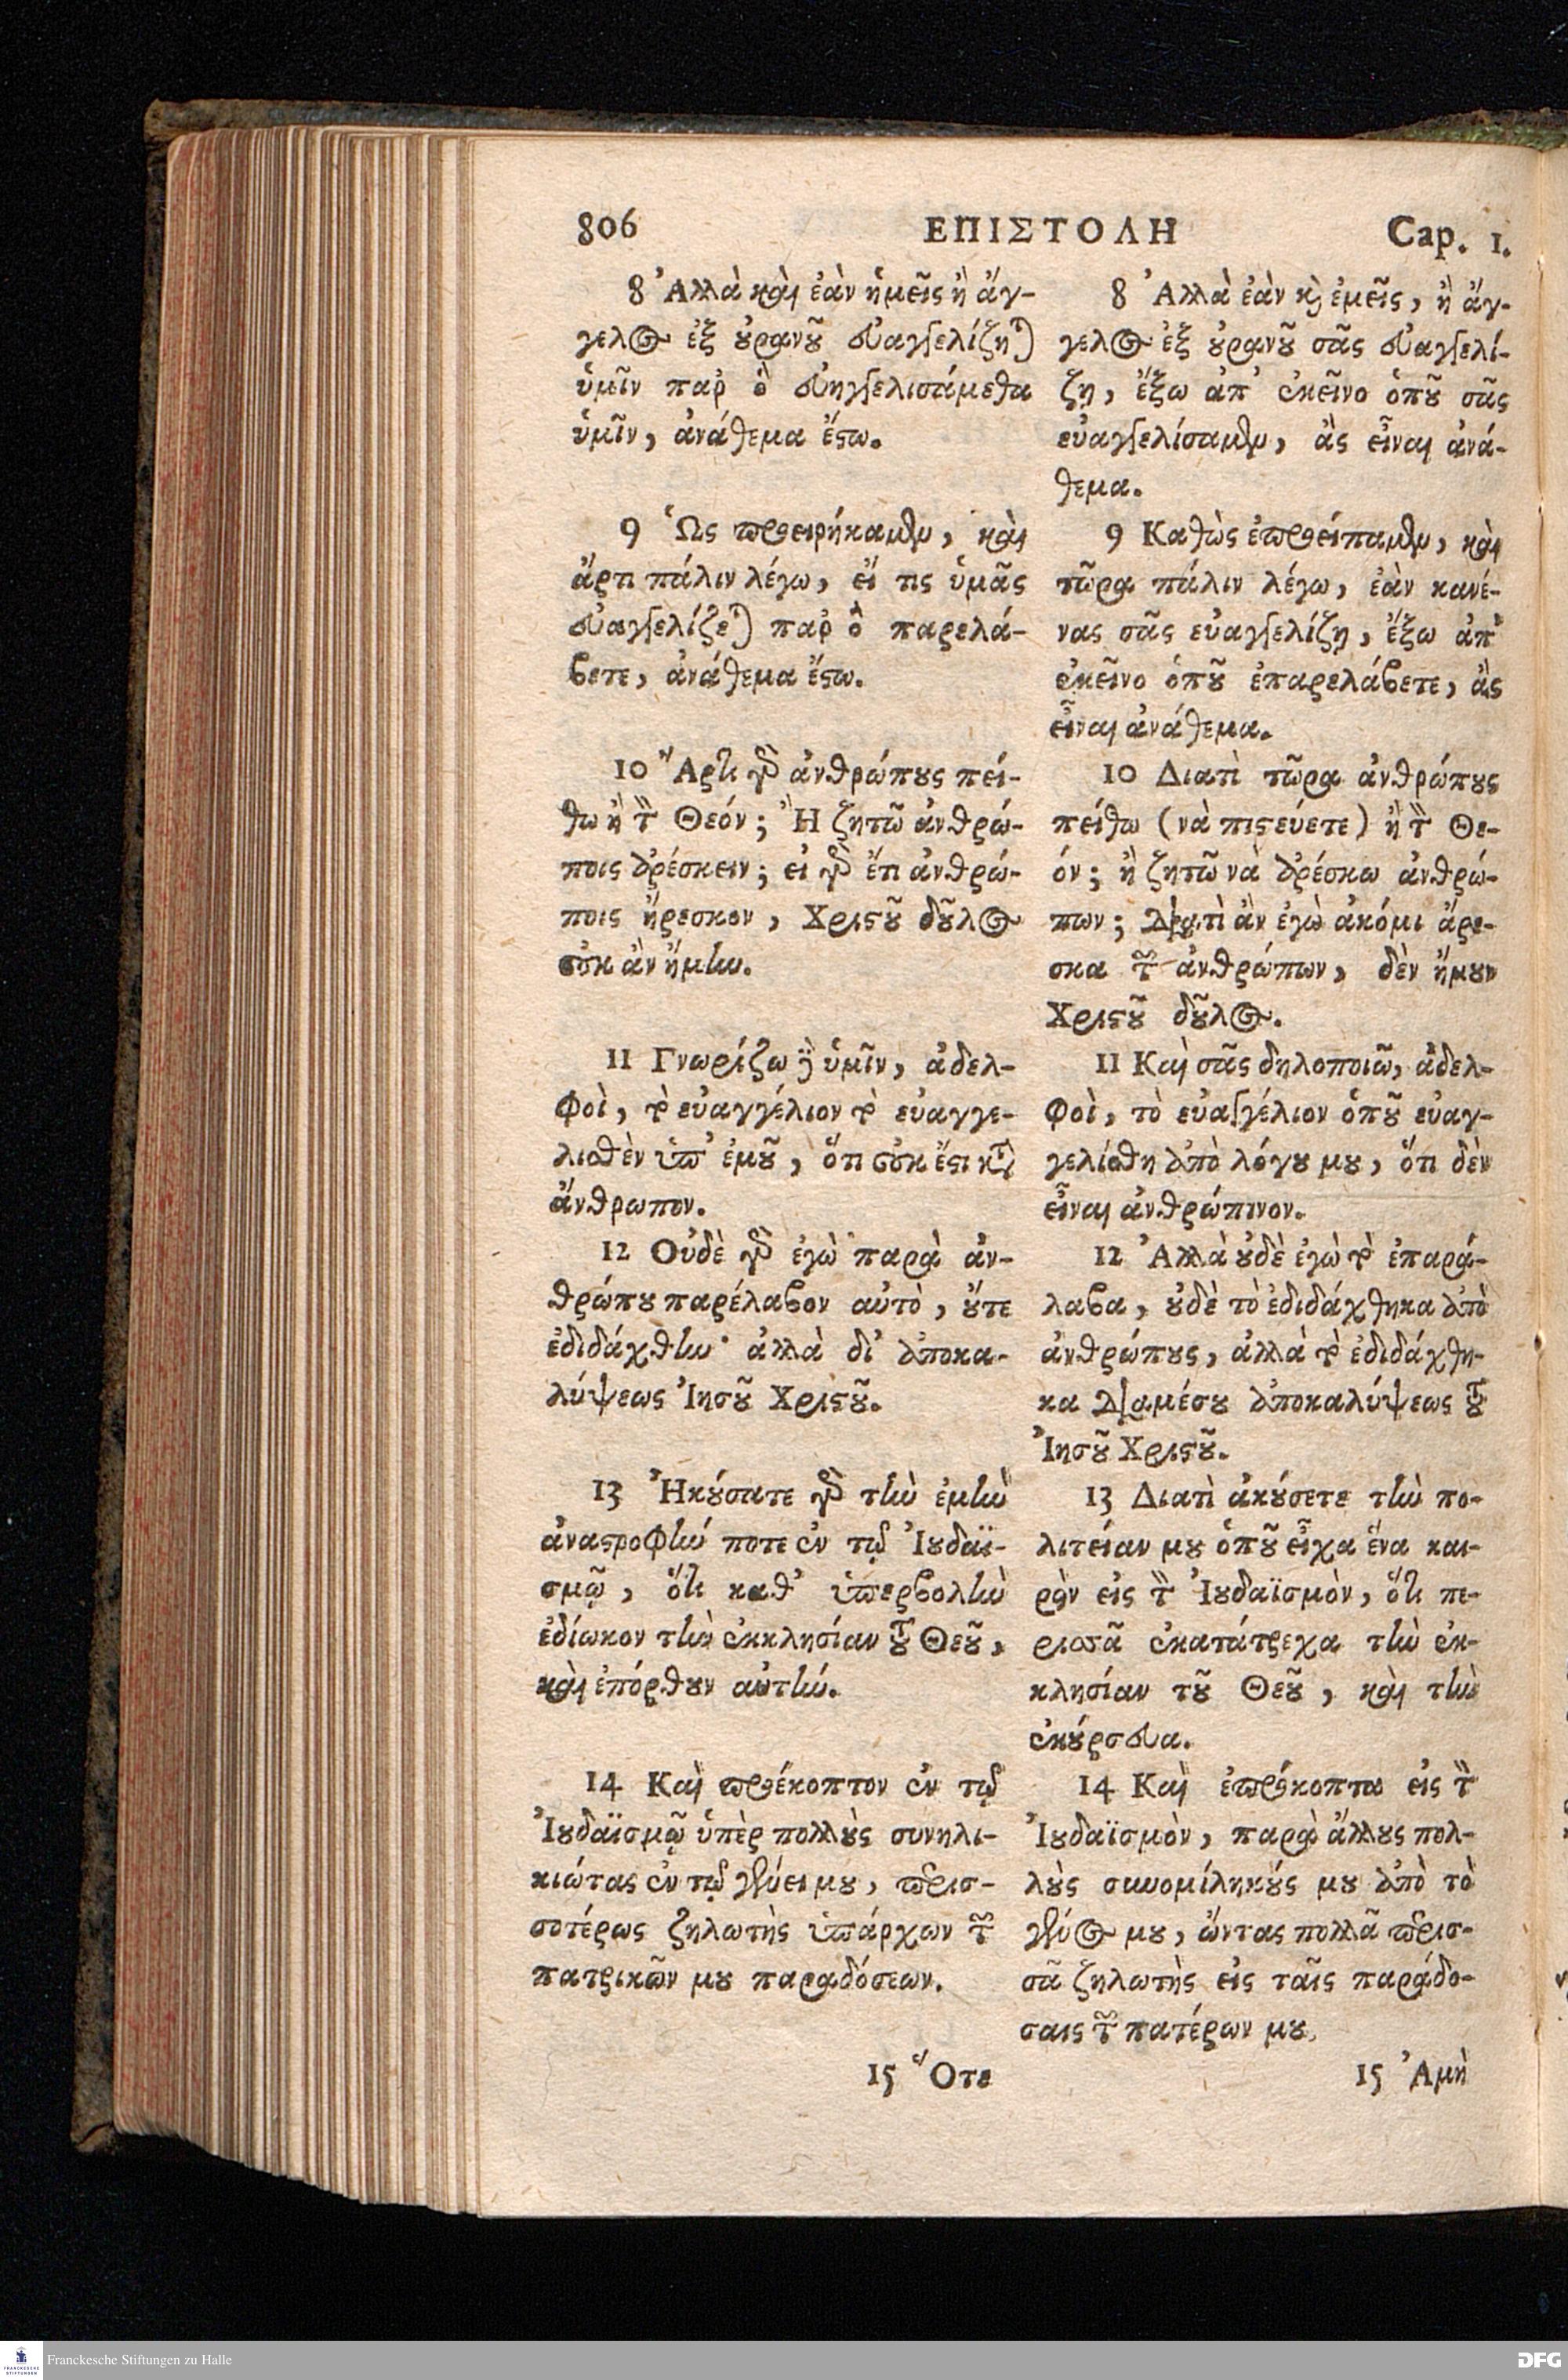 806 ΕΠΙΣΤΟΛΗ Cap. 1.
8 Ἀλλὰ καὶ ἐὰν ἡμεῖς ἢ ἄγ-
γελος ἐξ ȣ̓ρανȣ͂ εὐαγγελίζηται
ὑμῖν παρ' ὃ εὐηγγελισάμεθα
ὑμῖν, ἀνάθεμα ἔϛω.
9 Ὡς προειρήκαμεν, καὶ
ἄρτι πάλιν λέγω, εἴ τις ὑμᾶς
εὐαγγελίζεται παρ' ὃ παρελά-
βετε, ἀνάθεμα ἔϛω.
10 Ἄρτι γὰρ ἀνθρώπȣς πεί-
θω ἢ τὸν Θεόν; Ἢ ζητῶ ἀνθρώ-
ποις ἀρέσκειν; εἰ γὰρ ἔτι ἀνθρώ-
ποις ἤρεσκον, Χριϛȣ͂ δȣ͂λος
οὐκ ἂν ἤμην.
11 Γνωρίζω δὲ ὑμῖν, ἀδελ-
φοὶ, τὸ εὐαγγέλιον τὸ εὐαγγε-
λισθὲν ὑπ' ἐμȣ͂, ὅτι οὐκ ἔϛι κατὰ
ἄνθρωπον.
12 Οὐδὲ γὰρ ἐγὼ παρὰ ἀν-
θρώπȣ παρέλαβον αὐτὸ, ȣ̓́τε
ἐδιδάχθην· ἀλλὰ δι' ἀποκα-
λύψεως Ἰησȣ͂ Χριϛȣ͂.
13 Ἠκȣ́σατε γὰρ τὴν ἐμὴν
ἀναϛροφήν ποτε ἐν τῷ Ἰȣδαϊ-
σμῷ, ὅτι καθ' ὑπερβολὴν
ἐδίωκον τὴν ἐκκλησίαν τȣ͂ Θεȣ͂,
καὶ ἐπόρθȣν αὐτήν.
14 Καὶ προέκοπτον ἐν τῷ
Ἰȣδαϊσμῷ ὑπὲρ πολλȣ̀ς συνηλι-
κιώτας ἐν τῷ γένει μȣ, περισ-
σοτέρως ζηλωτὴς ὑπάρχων τῶν
πατρικῶν μȣ παραδόσεων.
15 Ὅτε
8 Ἀλλὰ ἐὰν καὶ ἐμεῖς, ἢ ἄγ-
γελος ἐξ ȣ̓ρανȣ͂ σᾶς εὐαγγελί-
ζῃ, ἔξω ἀπ' ἐκεῖνο ὁπȣ͂ σᾶς
εὐαγγελίσαμεν, ἂς εἶναι ἀνά-
θεμα.
9 Καθὼς ἐπροείπαμεν, καὶ
τῶρα πάλιν λέγω, ἐὰν κανέ-
νας σᾶς εὐαγγελίζῃ, ἔξω ἀπ'
ἐκεῖνο ὁπȣ͂ ἐπαρελάβετε, ἂς
εἶναι ἀνάθεμα.
10 Διατὶ τῶρα ἀνθρώπȣς
πείθω (νὰ πιϛεύετε) ἢ τὸν Θε-
όν; ἢ ζητῶ νὰ ἀρέσκω ἀνθρώ-
πων; Διατὶ ἂν ἐγὼ ἀκόμι ἄρε-
σκα τῶν ἀνθρώπων, δὲν ἤμȣν
Χριϛȣ͂ δȣ͂λος.
11 Καὶ σᾶς δηλοποιῶ, ἀδελ-
φοὶ, τὸ εὐαγγέλιον ὁπȣ͂ εὐαγ-
γελίσθη ἀπὸ λόγȣ μȣ, ὅτι δὲν
εἶναι ἀνθρώπινον.
12 Ἀλλὰ ȣ̓δὲ ἐγὼ τὸ ἐπαρά-
λαβα, ȣ̓δὲ τὸ ἐδιδάχθηκα ἀπὸ
ἀνθρώπȣς, ἀλλὰ τὸ ἐδιδάχθη-
κα διαμέσȣ ἀποκαλύψεως τȣ͂
Ἰησȣ͂ Χριϛȣ͂.
13 Διατὶ ἀκȣ́σετε τὴν πο-
λιτείαν μȣ ὁπȣ͂ εἶχα ἕνα και-
ρὸν εἰς τὸν Ἰȣδαϊσμὸν, ὅτι πε-
ρισσᾶ ἐκατάτρεχα τὴν ἐκ-
κλησίαν τȣ͂ Θεȣ͂, καὶ τὴν
ἐκȣ́ρσευα.
14 Καὶ ἐπρόκοπτα εἰς τὸν
Ἰȣδαϊσμὸν, παρὰ ἄλλȣς πολ-
λȣ̀ς συνομίληκȣ́ς μȣ ἀπὸ τὸ
γένος μȣ, ὤντας πολλᾶ περισ-
σᾶ ζηλωτὴς εἰς ταῖς παράδο-
σαις τῶν πατέρων μȣ.
15 Ἀμὴ
Franckesche Stiftungen zu Halle
DFG